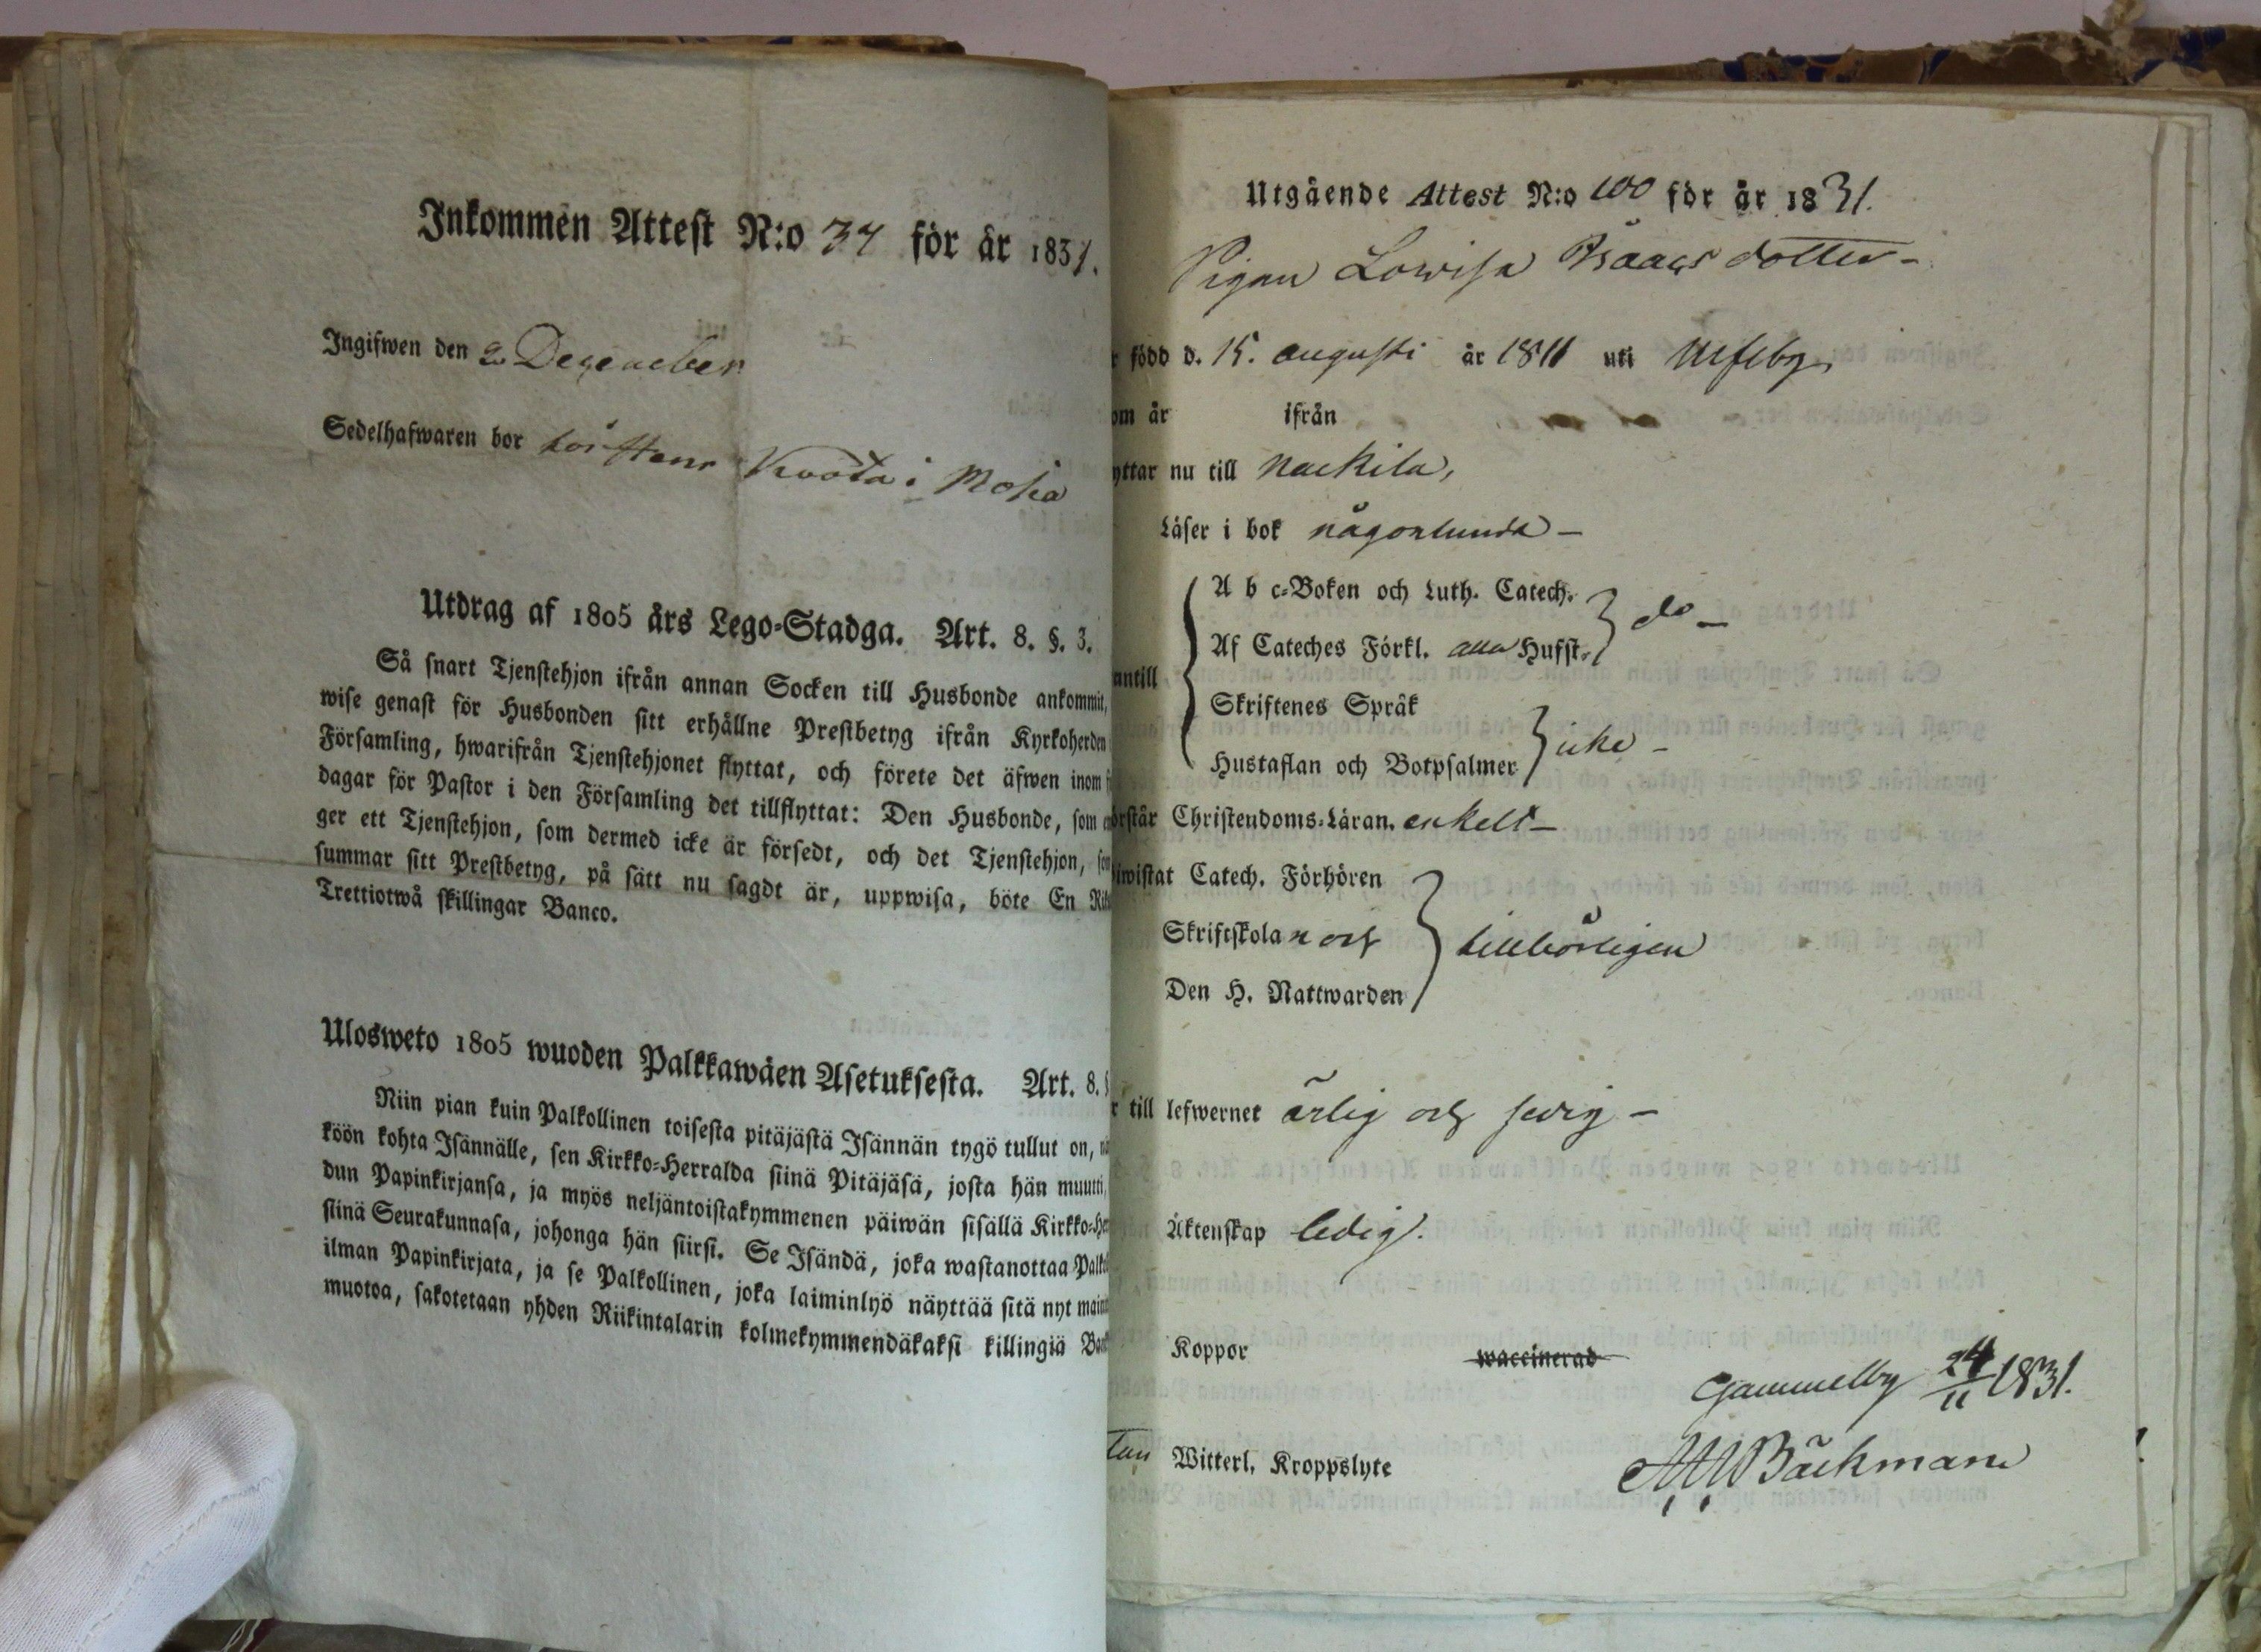 Inkommen Attest N:o 34 för år 1831.
Ingifwen den 2 December
Sedelhafwaren bor hos i
Utdrag af 1805 års Lego-Stadga. Art. 8. §. 3.
Så snart Tjenstehjon ifrån annan Socken till Husbonde ankommit,
wise genast för Husbonden sitt erhållne Prestbetyg ifrån Kyrkoherden
Församling, hwarifrån Tjenstehjonet flyttat, och förete det äfwen inom
dagar för Pastor i den Församling det tillflyttat: Den Husbonde, som
ger ett Tjenstehjon, som dermed icke är försedt, och det Tjenstehjon,
summar sitt Prestbetyg, på sätt nu sagdt är, uppwisa, böte En
Trettiotwå skillingar Banco.
Ulosweto 1805 wuoden Palkkawäen Asetuksesta. Art. 8.
Niin pian kuin Palkollinen toisesta pitäjästä Isännän tygö tullut on,
köön kohta Isännälle, sen Kirkko-Herralda siinä Pitäjäsä, josta hän muutti,
dun Papinkirjansa, ja myös neljäntoistakymmenen päiwän sisällä Kirkko-
siinä Seurakunnasa, johonga hän siirsi. Se Isändä, joka wastanottaa
ilman Papinkirjata, ja se Palkollinen, joka laiminlyö näyttää sitä nyt
muotoa, sakotetaan yhden Riikintalarin kolmekymmendäkaksi killingiä
Utgående Attest N:o 100 för år 1831.
Pigan Lowisa Isaacsdotter-
född d. 15. augusti år 1811 uti Ulfsby
om år ifrån
yttar nu till Nackila,
Läser i bok någorlunda -
A b c-Boken och Luth. Catech.
Af Cateches Förkl. alla Hufst. } do -
antill
Skriftenes Språk
Hustaflan och Botpsalmer } icke -
örstår Christendoms-Läran. enkelt -
iwistat Catech. Förhören
Skriftskolan och } tillbörligen
Den H. Nattwarden
r till lefwernet ärlig och sedig -
Äktenskap ledig.
Koppor waccinerad
Gammelby 24/11 1831.
tan Witterl. Kroppslyte
Bäckman